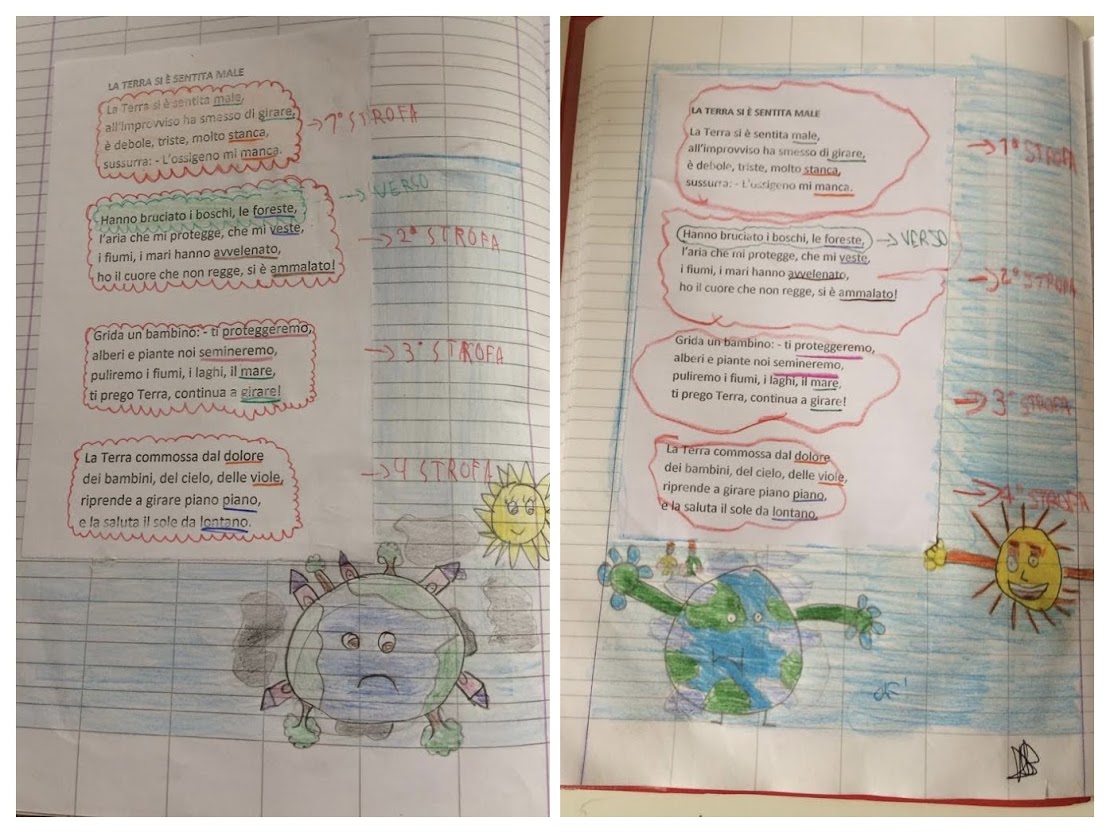 LA TERRA SI È SENTITA MALE
La Terra si è sentita male,
all'improvviso ha smesso di girare,
è debole, triste, molto stanca,
sussurra: - L'ossigeno mi manca.
→ 1ª STROFA
→ VERSO
Hanno bruciato i boschi, le foreste,
l'aria che mi protegge, che mi veste,
i fiumi, i mari hanno avvelenato,
ho il cuore che non regge, si è ammalato!
→ 2ª STROFA
Grida un bambino: - ti proteggeremo,
alberi e piante noi semineremo,
puliremo i fiumi, i laghi, il mare,
ti prego Terra, continua a girare!
→ 3ª STROFA
La Terra commossa dal dolore
dei bambini, del cielo, delle viole,
riprende a girare piano piano,
e la saluta il sole da lontano.
→ 4 STROFA
LA TERRA SI È SENTITA MALE
La Terra si è sentita male,
all'improvviso ha smesso di girare,
è debole, triste, molto stanca,
sussurra: - L'ossigeno mi manca.
→ 1ª STROFA
Hanno bruciato i boschi, le foreste, → VERSO
l'aria che mi protegge, che mi veste,
i fiumi, i mari hanno avvelenato,
ho il cuore che non regge, si è ammalato!
→ 2ª STROFA
Grida un bambino: - ti proteggeremo,
alberi e piante noi semineremo,
puliremo i fiumi, i laghi, il mare,
ti prego Terra, continua a girare!
→ 3ª STROFA
La Terra commossa dal dolore
dei bambini, del cielo, delle viole,
riprende a girare piano piano,
e la saluta il sole da lontano.
→ 4ª STROFA